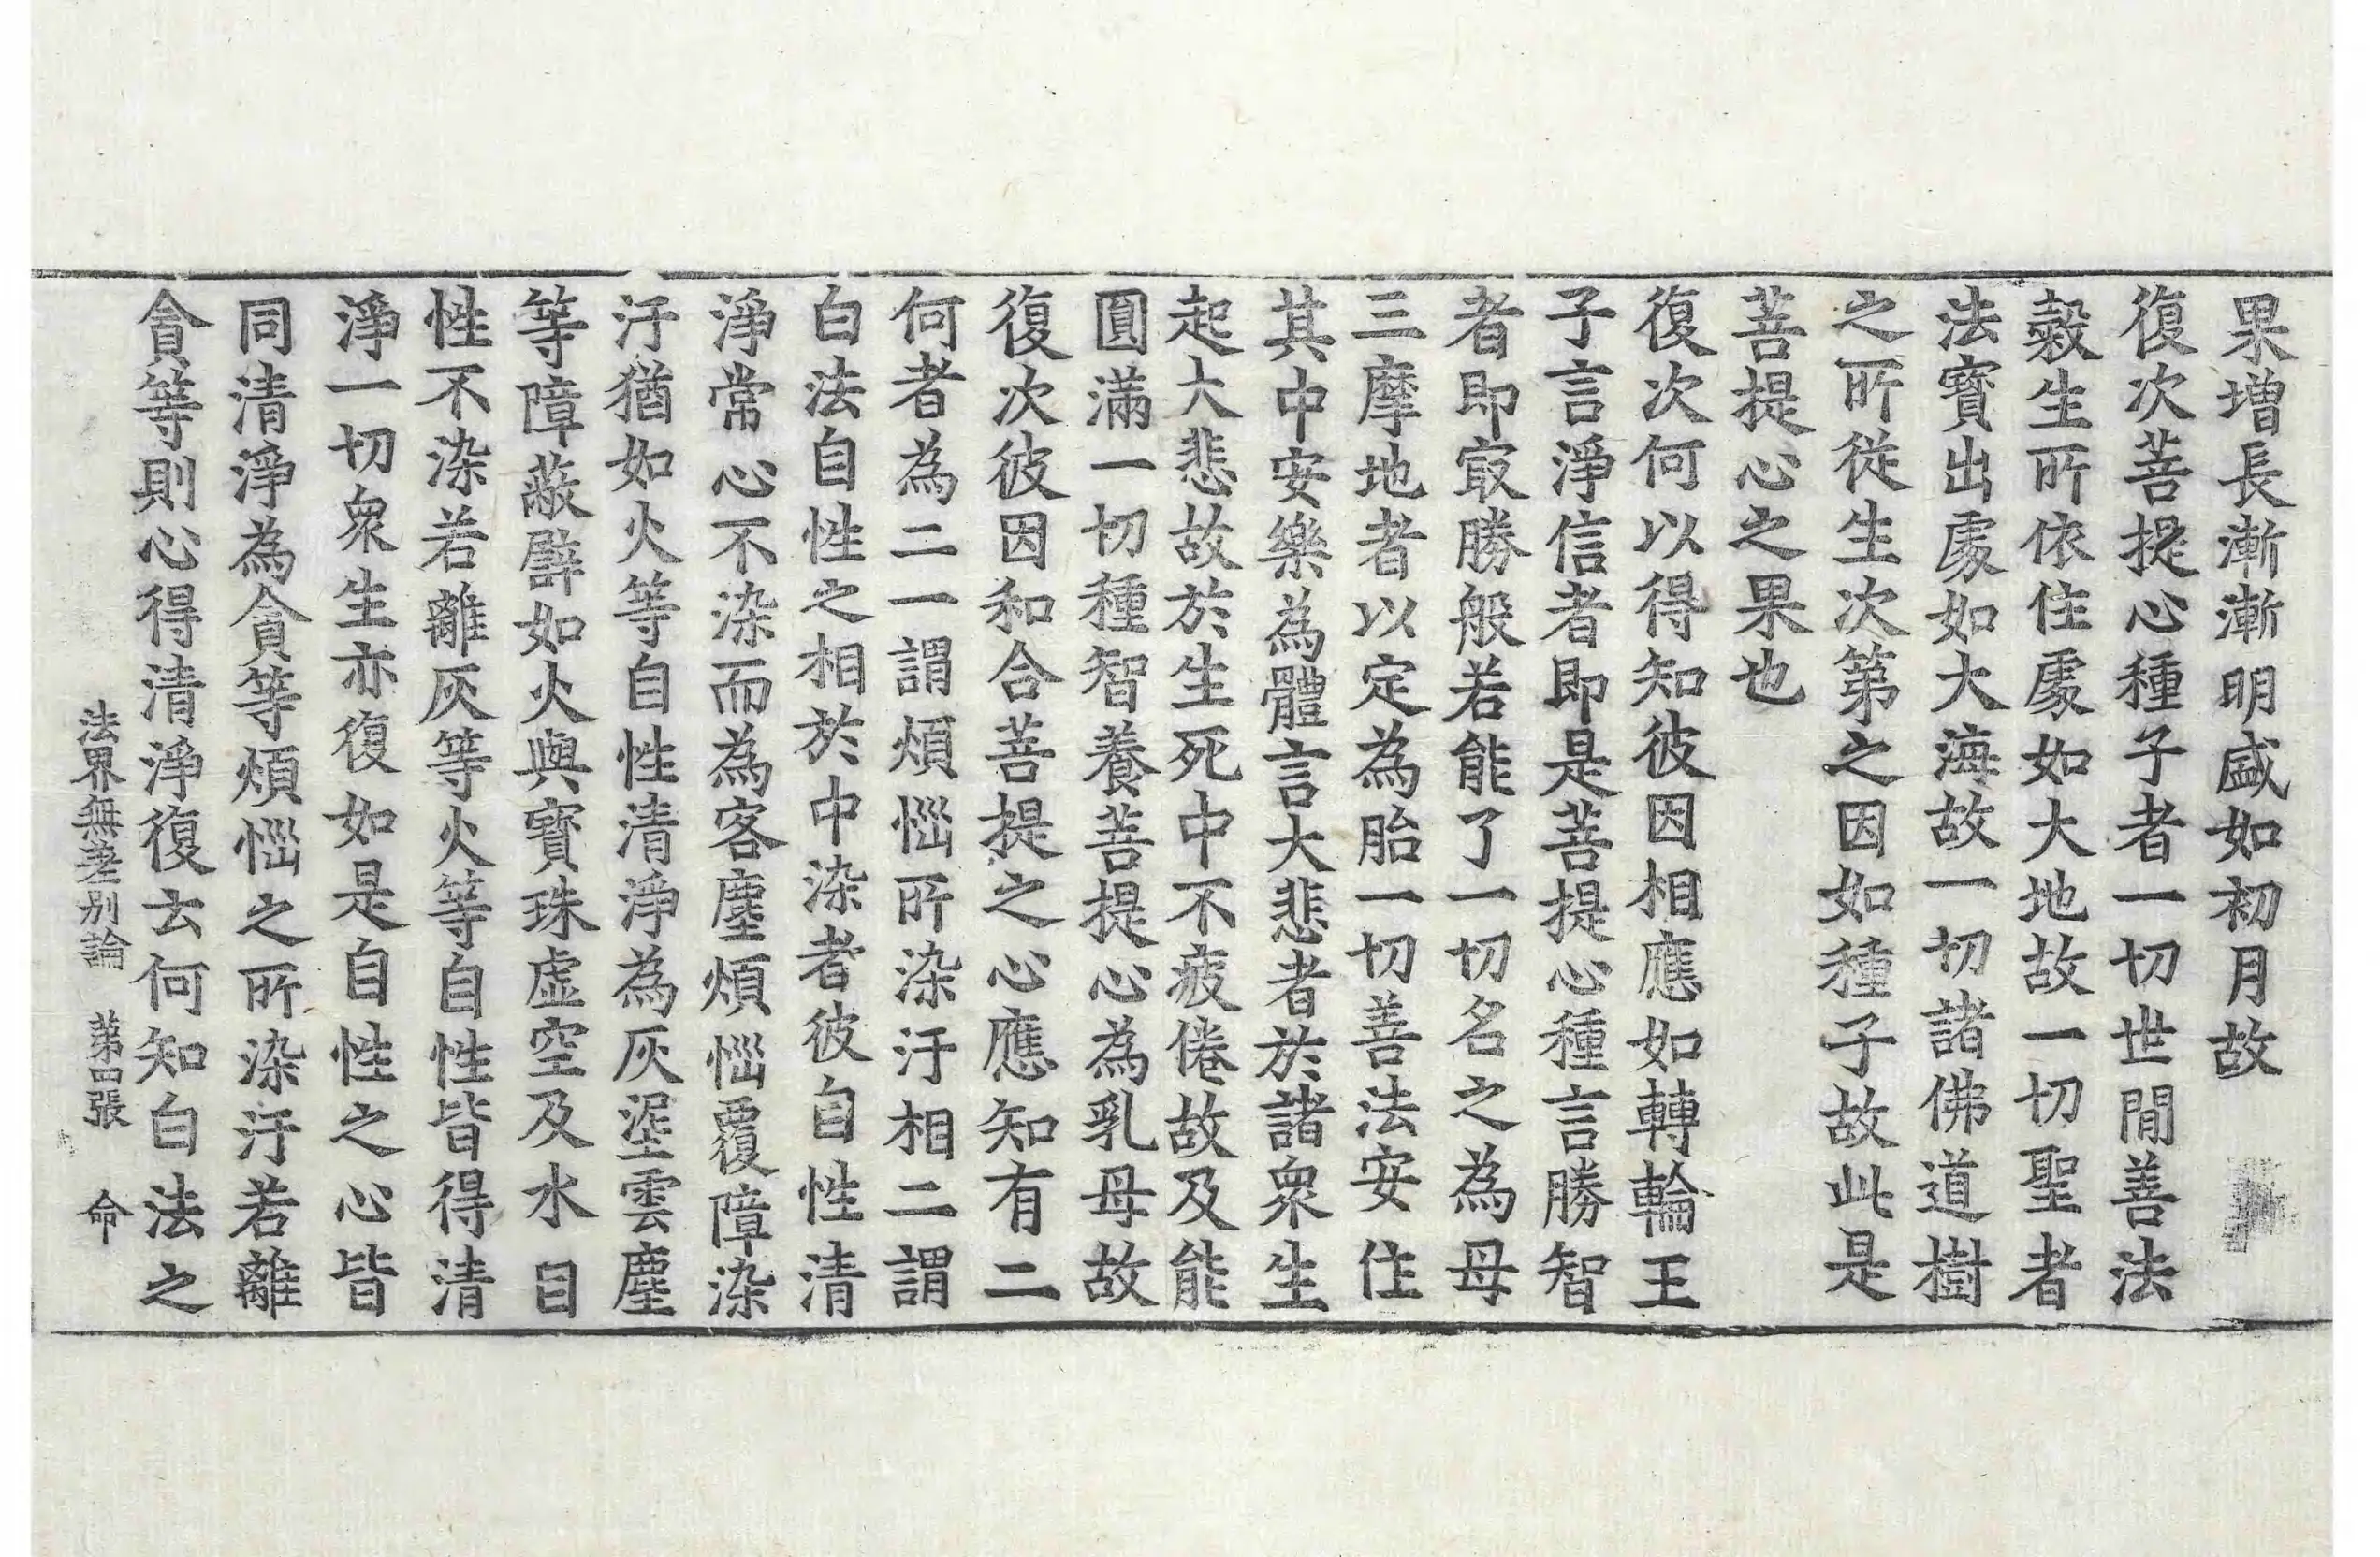 果增長漸漸明盛如初月故
復次菩提心種子者一切世間善法
糓生所依住處如大地故一切聖者
法寶出處如大海故一切諸佛道樹
之所從生次第之因如種子故此是
菩提心之果也
復次何以得知彼因相應如轉輪王
子言淨信者即是菩提心種言勝智
者即㝡勝般若能了一切名之為母
三摩地者以定為胎一切善法安住
其中安樂為體言大悲者於諸衆生
起大悲故於生死中不疲倦故及能
圓滿一切種智養菩提心為乳母故
復次彼因和合菩提之心應知有二
何者為二一謂煩惱所染汙相二謂
白法自性之相於中染者彼自性清
淨常心不染而為客塵煩惱覆障染
汙猶如火等自性清淨為灰垽雲塵
等障蔽譬如火與寶珠虛空及水自
性不染若離灰等火等自性皆得清
淨一切衆生亦復如是自性之心皆
同清淨為貪等煩惱之所染汙若離
貪等則心得清淨復云何知白法之
法界無差別論 第四張 命